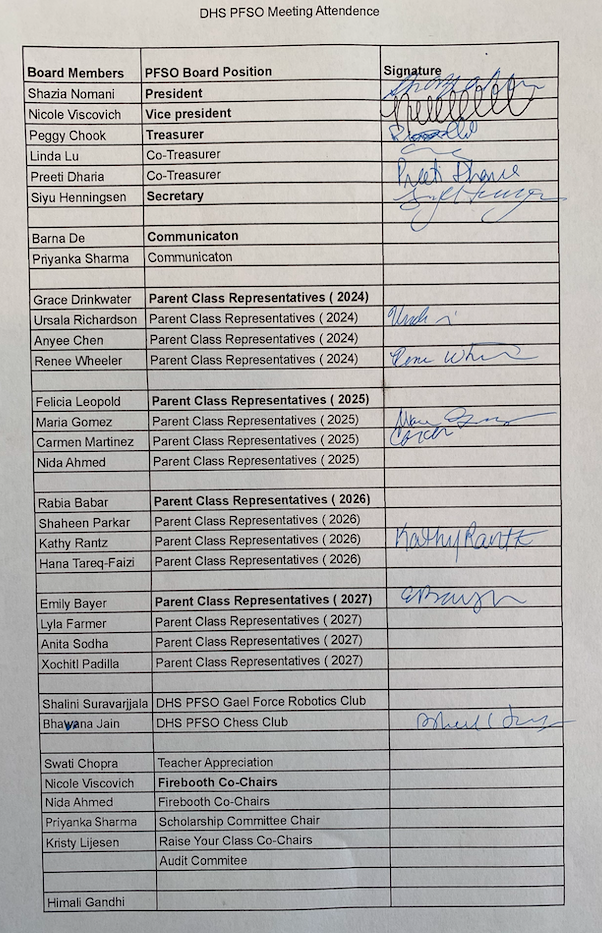 DHS PFSO Meeting Attendence
Board Members PFSO Board Position Signature
Shazia Nomani President
Nicole Viscovich Vice president
Peggy Chook Treasurer
Linda Lu Co-Treasurer
Preeti Dharia Co-Treasurer Preeti Dharia
Siyu Henningsen Secretary
Barna De Communicaton
Priyanka Sharma Communicaton
Grace Drinkwater Parent Class Representatives ( 2024)
Ursala Richardson Parent Class Representatives ( 2024)
Anyee Chen Parent Class Representatives ( 2024)
Renee Wheeler Parent Class Representatives ( 2024)
Felicia Leopold Parent Class Representatives ( 2025)
Maria Gomez Parent Class Representatives ( 2025)
Carmen Martinez Parent Class Representatives ( 2025)
Nida Ahmed Parent Class Representatives ( 2025)
Rabia Babar Parent Class Representatives ( 2026)
Shaheen Parkar Parent Class Representatives ( 2026)
Kathy Rantz Parent Class Representatives ( 2026) Kathy Rantz
Hana Tareq-Faizi Parent Class Representatives ( 2026)
Emily Bayer Parent Class Representatives ( 2027)
Lyla Farmer Parent Class Representatives ( 2027)
Anita Sodha Parent Class Representatives ( 2027)
Xochitl Padilla Parent Class Representatives ( 2027)
Shalini Suravarjjala DHS PFSO Gael Force Robotics Club
Bhawana Jain DHS PFSO Chess Club
Swati Chopra Teacher Appreciation
Nicole Viscovich Firebooth Co-Chairs
Nida Ahmed Firebooth Co-Chairs
Priyanka Sharma Scholarship Committee Chair
Kristy Lijesen Raise Your Class Co-Chairs
Audit Commitee
Himali Gandhi